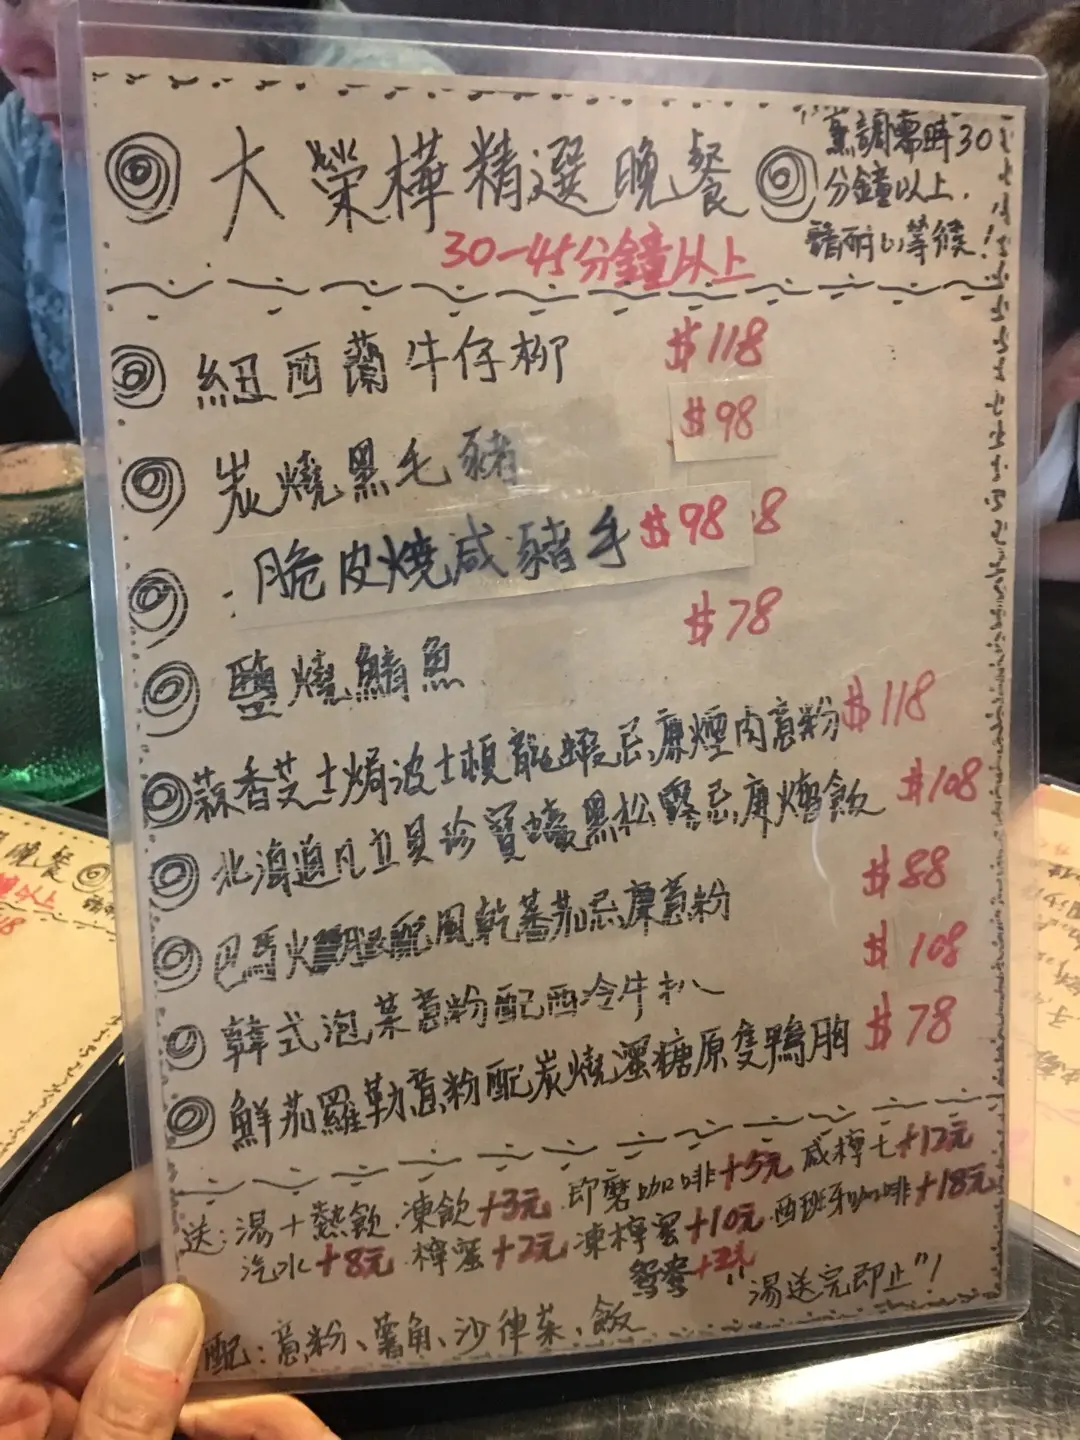 大榮樺精選晚餐
烹調需時30
分鐘以上，
請耐心等候！
30-45分鐘以上
紐西蘭牛仔柳 $118
炭燒黑毛豬 $98
脆皮燒咸豬手 $98 8
鹽燒鯖魚 $78
蒜香芝士焗波士頓龍蝦忌廉煙肉意粉 $118
北海道凡立貝珍寶蠔黑松露忌廉燴飯 $108
巴馬火腿配風乾蕃茄忌廉意粉 $88
韓式泡菜意粉配西冷牛扒 $108
鮮茄羅勒意粉配炭燒蜜糖原隻鴨胸 $78
送：湯＋熱飲．凍飲+3元．即磨咖啡+5元 咸檸七+12元
汽水+8元．檸蜜+2元 凍檸蜜+10元．西班牙咖啡+18元
鴛鴦+2元 "湯送完即止"！
配：意粉、薯角、沙律菜、飯
晚餐